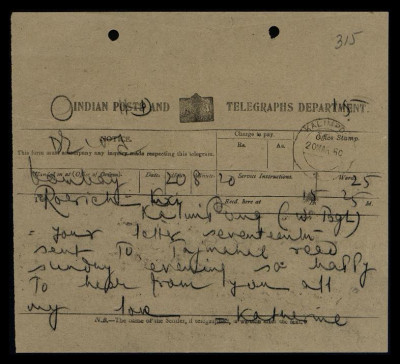 315
O HD 15
INDIAN POSTS AND TELEGRAPHS DEPARTMENT.
Charge to pay. Office Stamp.
NOTICE.
Rs. As.
KALIMPONG
This form must accompany any inquiry made respecting this telegram.
Handed in at (Office of Origin). Date. Hour. Minute. Service Instructions. Words.
Bombay 20 8 20 25
Recd. here at H. 25 M.
Roerich
Kalimpong (W Bgl)
= your letter seventeenth
sent to Tajmahal read
sunday evening so happy
to hear from you all
my love = Katherine
N.B.—The name of the Sender, if telegraphed, is written after the text.